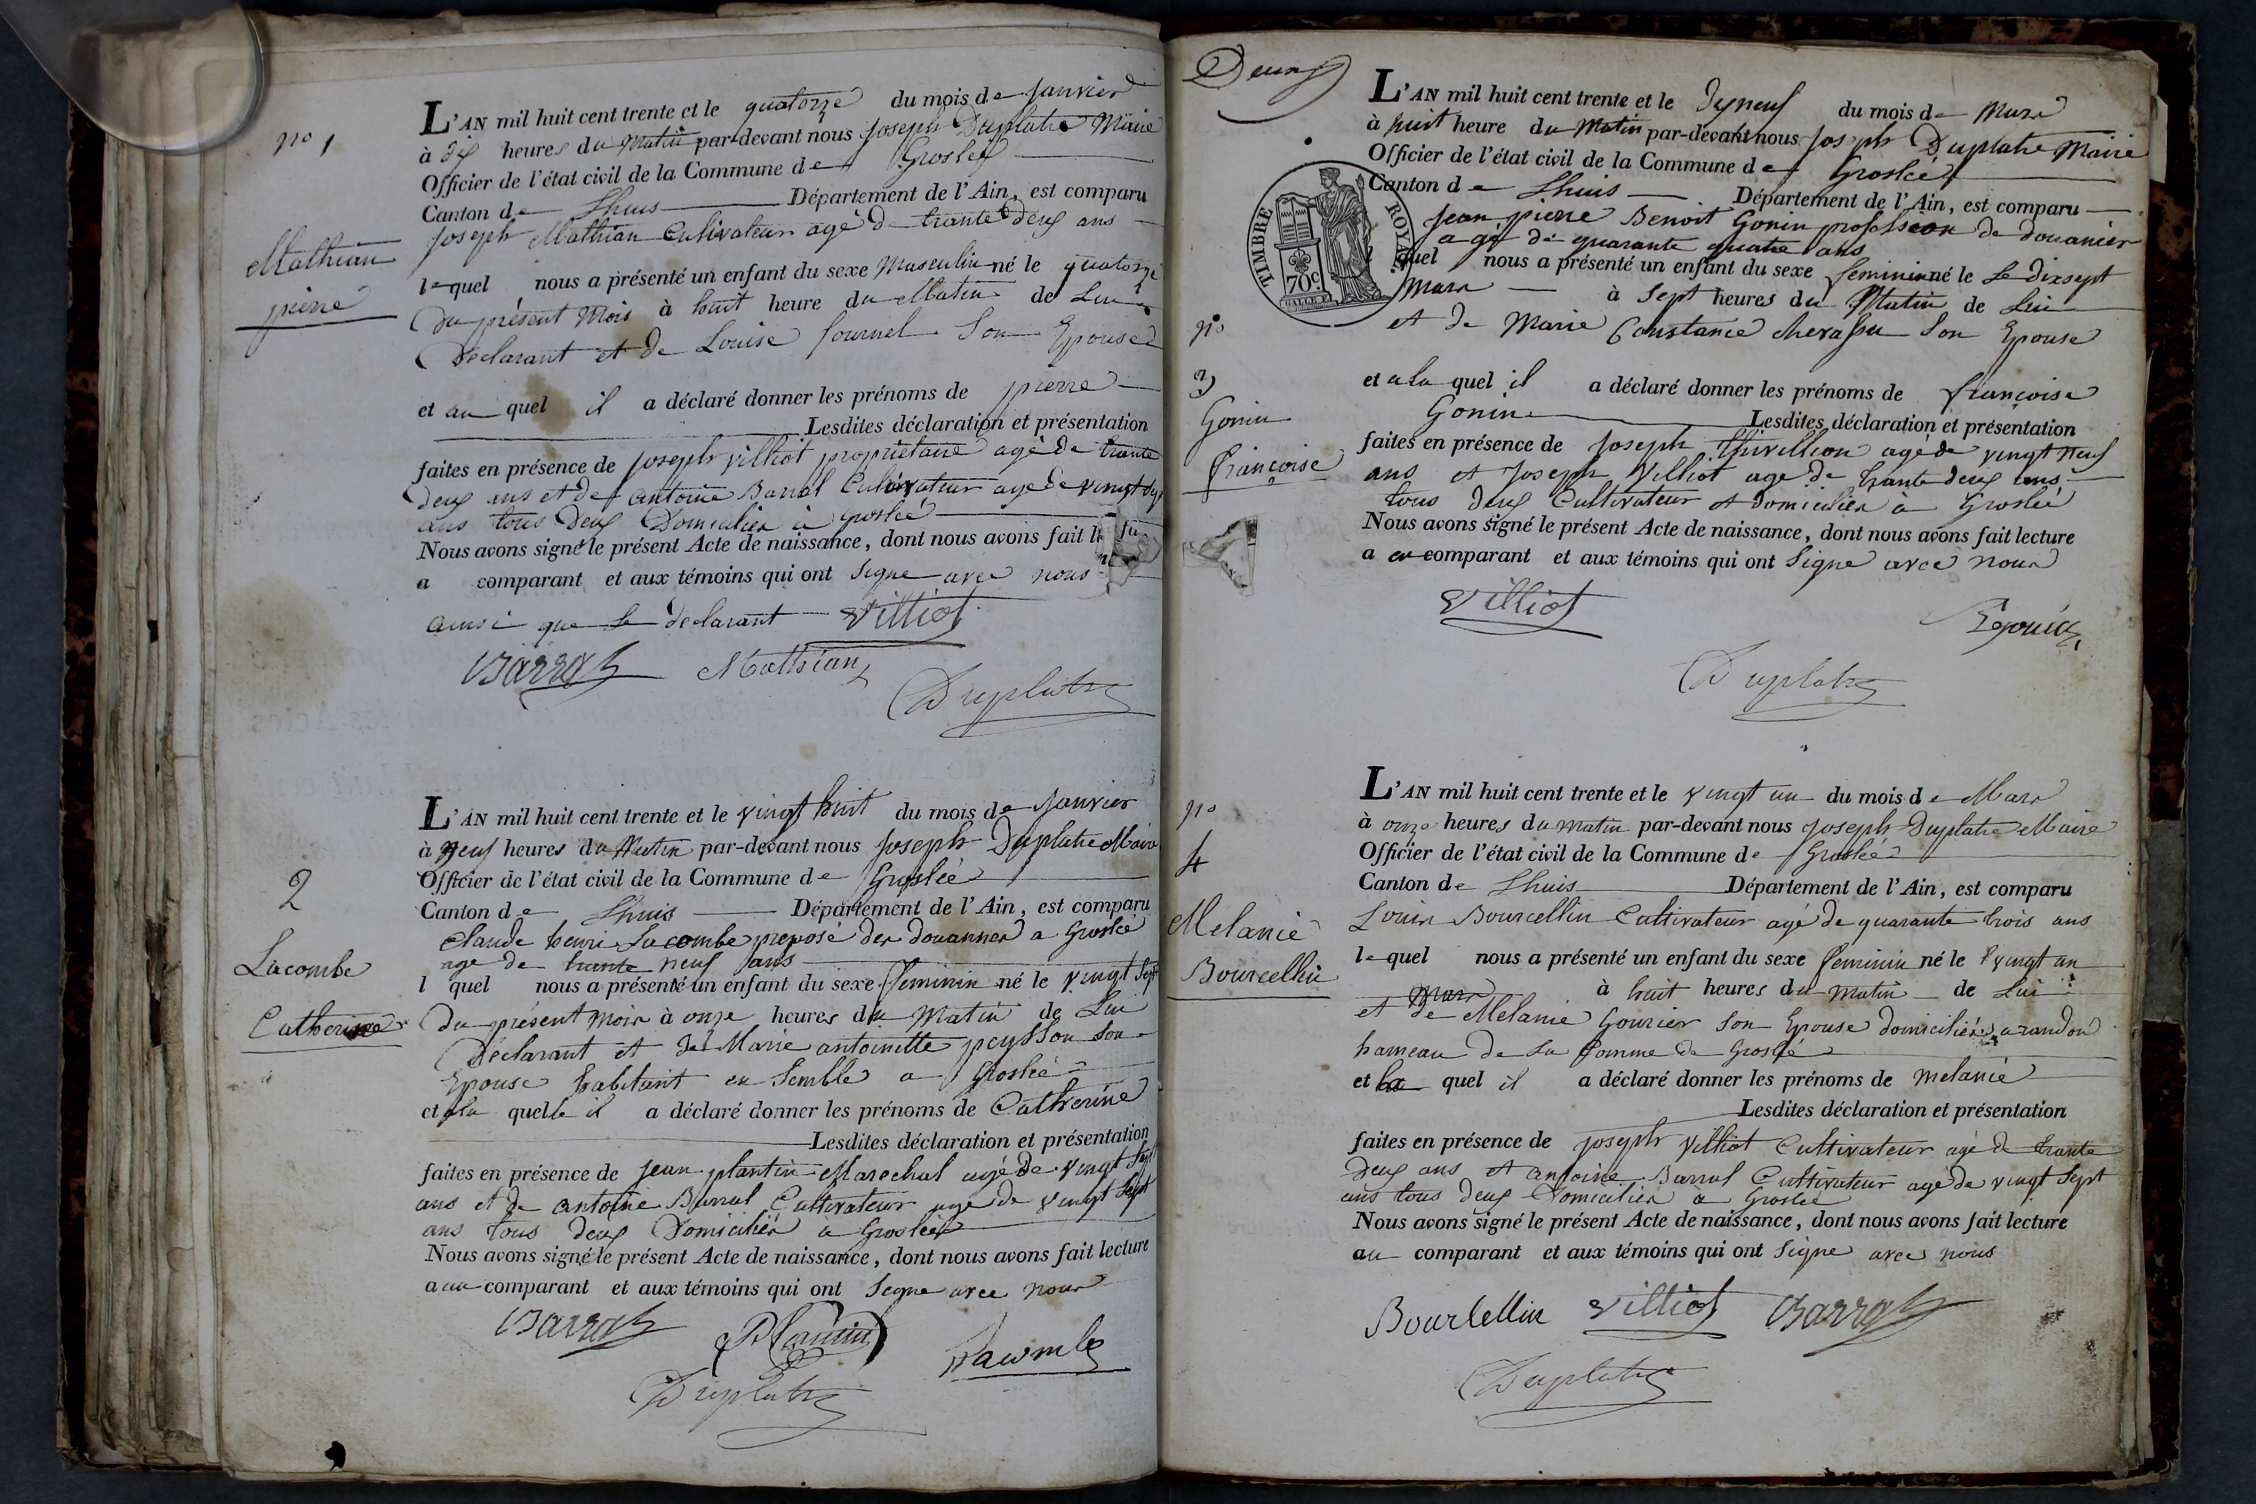 no 1
Mathian
pierre
L'AN mil huit cent trente et le quatorze du mois de Janvier
à dix heures du Matin par-devant nous Joseph Duplatre Maire
Officier de l'état civil de la Commune de Groslee
Canton de Lhuis Département de l'Ain, est comparu
Joseph Mathian Cultivateur agé de trante deux ans
lequel nous a présenté un enfant du sexe Masculin né le quatorze
du présent Mois à huit heure du Matin de Lui
Déclarant et de Louise fournel Son Epouse
et au quel il a déclaré donner les prénoms de pierre
Lesdites déclaration et présentation
faites en présence de Joseph villiot propriétaire agé de trante
deux ans et de antoine Barral Cultivateur agé de vingt Sept
ans tous deux Domicilier à Groslée
Nous avons signé le présent Acte de naissance, dont nous avons fait
a comparant et aux témoins qui ont Signe avec nous
ainsi que le déclarant Villiot
Barral Mathian
Duplatre
2
Lacombe
Catherine
L'AN mil huit cent trente et le vingt huit du mois de Janvier
à Neuf heures du Matin par-devant nous Joseph Duplatre Maire
Officier de l'état civil de la Commune de Groslée
Canton de Lhuis Département de l'Ain, est comparu
Claude henri Lacombe preposé des douannes a Groslée
age de trante neuf ans
l quel nous a présenté un enfant du sexe feminin né le Vingt Sept
du présent mois à onze heures du Matin de Lui
Déclarant et de Marie antoinette peysson Son
Epouse habitant en Semble a Groslée
et a la quelle il a déclaré donner les prénoms de Catherine
Lesdites déclaration et présentation
faites en présence de Jean plantin Marechal agé de Vingt Sept
ans et de antoine Barral Cultivateur age de vingt Sept
ans tous deux Domicilier a Groslée
Nous avons signé le présent Acte de naissance, dont nous avons fait lecture
a au comparant et aux témoins qui ont Segne avec nous
Barral Plantin Lacombe
Duplatre
Deux
TIMBRE ROYAL
70c.
no
3
Gonin
françoise
L'AN mil huit cent trente et le dixneuf du mois de Mars
à huit heure du Matin par-devant nous Joseph Duplatre Maire
Officier de l'état civil de la Commune de Groslée
Canton de Lhuis Département de l'Ain, est comparu
Jean pierre Benoit Gonin profession de douanier
agé de quarante quatre ans
quel nous a présenté un enfant du sexe feminin né le Le dixsept
Mars à Sept heures du Matin de Lui
et de Marie Constance Son Epouse
et a la quel il a déclaré donner les prénoms de françoise
Gonin Lesdites déclaration et présentation
faites en présence de Joseph Thivillion agé de vingt Neuf
ans et Joseph Villiot age de trante deux ans
tous deux Cultivateur et domicilier à Groslée
Nous avons signé le présent Acte de naissance, dont nous avons fait lecture
a comparant et aux témoins qui ont Signe avec nous
Villiot
Duplatre
no
4
Melanie
Bourcellin
L'AN mil huit cent trente et le vingt un du mois de Mars
à onze heures du matin par-devant nous Joseph Duplatre Maire
Officier de l'état civil de la Commune de Groslée
Canton de Lhuis Département de l'Ain, est comparu
Louis Bourcellin Cultivateur agé de quarante trois ans
lequel nous a présenté un enfant du sexe feminin né le vingt un
Mars à huit heures du Matin de Lui
et de Melanie Gourier Son Epouse domicilié a randon
hameau de La Comune de Groslée
et la quel il a déclaré donner les prénoms de melanie
Lesdites déclaration et présentation
faites en présence de Joseph Villiot Cultivateur agé de trante
deux ans et antoine Barral Cultivateur agé de vingt Sept
ans tous deux Domicilier a Groslée
Nous avons signé le présent Acte de naissance, dont nous avons fait lecture
au comparant et aux témoins qui ont Signe avec nous
Bourcellin Villiot Barral
Duplatre